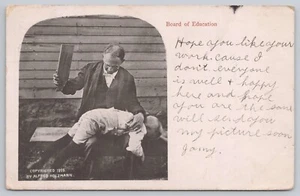 Board of Education
Hope you like your
work. cause I
don't everyone
is well & happy
here and hope
you are the same
will send you
my picture soon
COPYRIGHTED 1905
BY ALFRED HOLZMANN